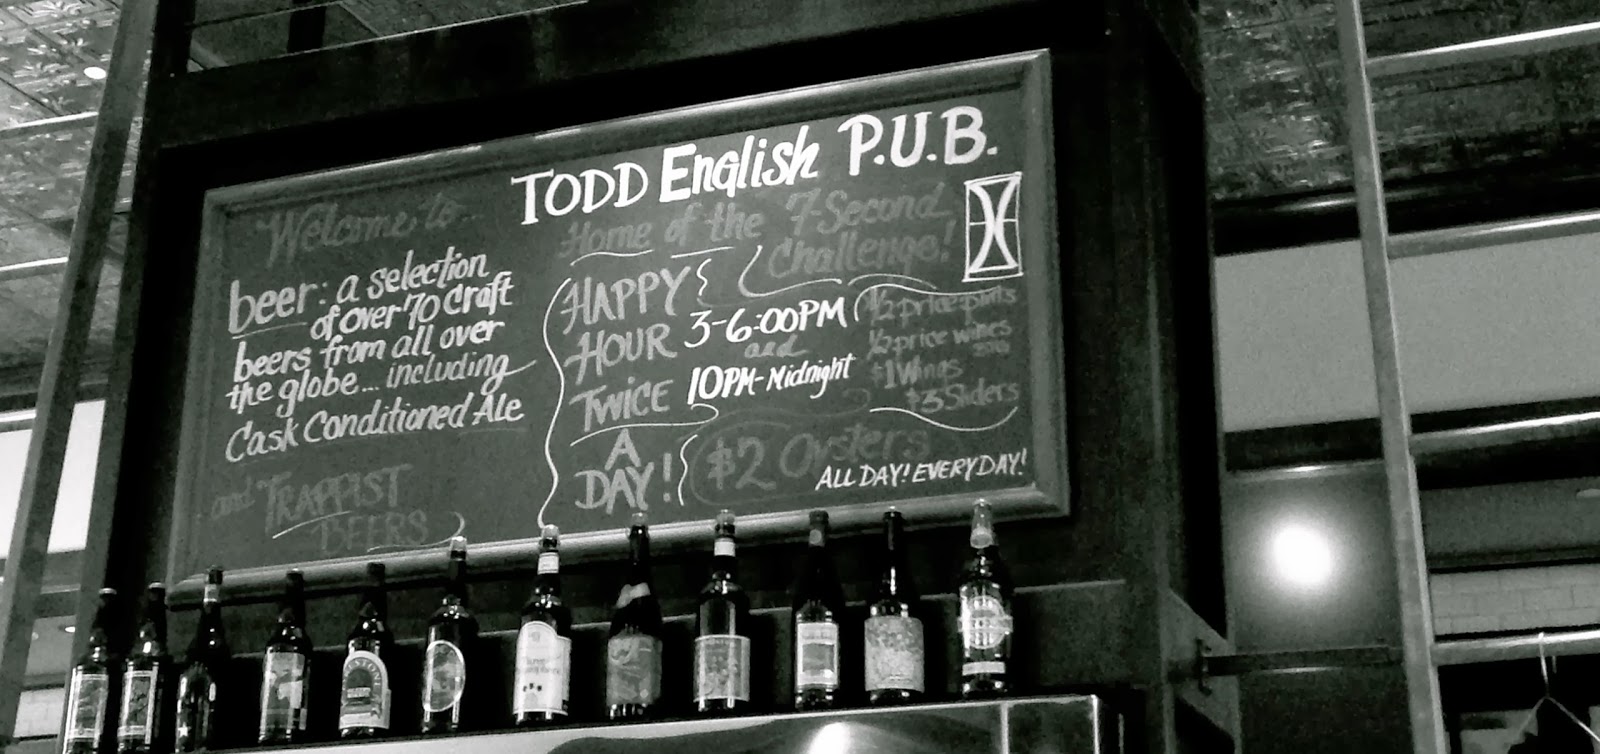 Welcome to..
TODD English P.U.B.
Home of the 7 Second
Challenge!
beer: a selection
of over 70 Craft
beers from all over
the globe... including
Cask Conditioned Ale
and TRAPPIST
BEERS
HAPPY
HOUR
TWICE
A
DAY!
3-6:00PM
and
10PM-Midnight
1/2 price pints
1/2 price wines
$1 Wings
$3 Sliders
$2 Oysters
ALL DAY! EVERYDAY!